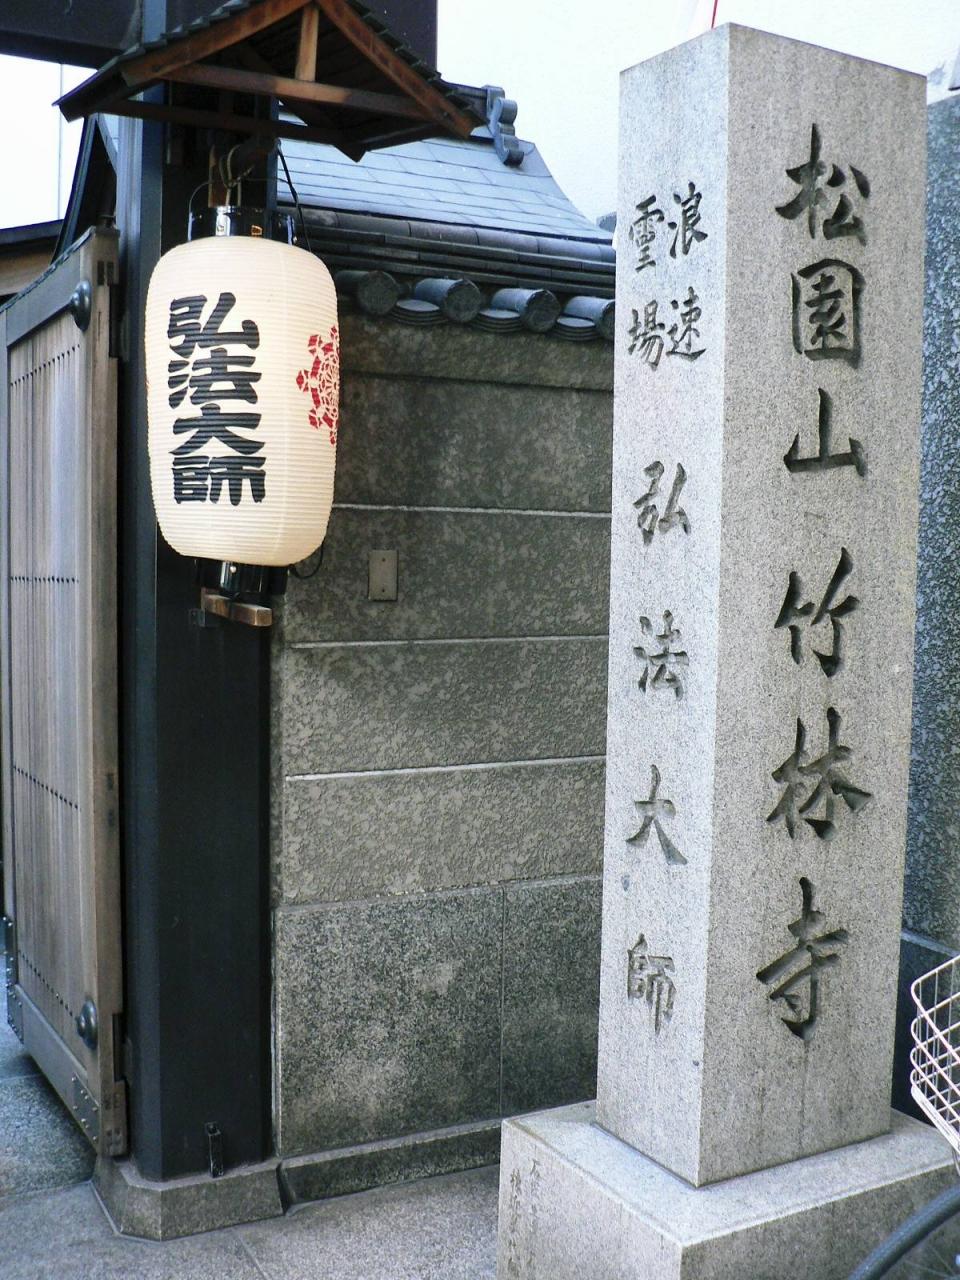 松園山竹林寺
浪速
霊場
弘法大師
弘法大師